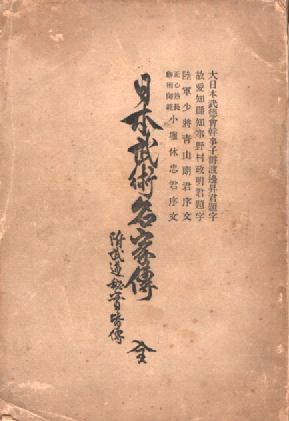 大日本武德會幹事子爵渡邊昇君題字
故愛知縣知事野村政明君題字
陸軍少將青山朗君序文
小堀休忠君序文
日本武術名家傳
附武道秘密皆傳
全